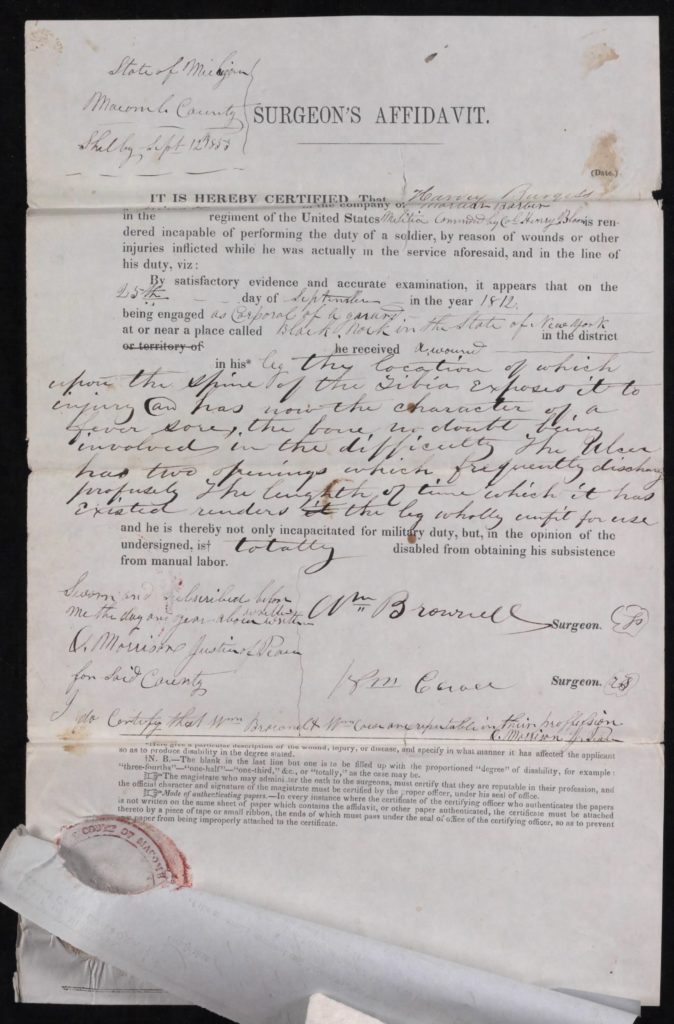 State of Michigan
Macomb County
Shelby, Sept 12 1853
SURGEON'S AFFIDAVIT.
(Date.)
IT IS HEREBY CERTIFIED That Harvey Burgess
in the company of Barber
in the regiment of the United States Militia Commded by Col Henry is ren-
dered incapable of performing the duty of a soldier, by reason of wounds or other
injuries inflicted while he was actually in the service aforesaid, and in the line of
his duty, viz:
By satisfactory evidence and accurate examination, it appears that on the
25th day of September in the year 1812,
being engaged as Corporal of a guard
at or near a place called Black Rock in the State of New York in the district
or territory of he received a wound
in his* leg the location of which
upon the spine of the Tibia Exposes it to
injury and has now the character of a
fever sore, the bone no doubt being
involved in the difficulty The Ulcer
has two openings which frequently discharg
profusely The lenghth of time which it has
Existed renders it the leg wholly unfit for use
and he is thereby not only incapacitated for military duty, but, in the opinion of the
undersigned, is† totally disabled from obtaining his subsistence
from manual labor.
Sworn and subscribed before
me the day and year above written
Wm Brownell Surgeon.
Morrison Justice Peace
for Said County
Wm Surgeon.
I do Certify that Wm Brownell & Wm are reputable in their proffession
Morrison
*Here give a particular description of the wound, injury, or disease, and specify in what manner it has affected the applicant
so as to produce disability in the degree stated.
†N. B.—The blank in the last line but one is to be filled up with the proportioned "degree" of disability, for example:
"three-fourths"—"one-half"—"one-third," &c., or "totally," as the case may be.
☞The magistrate who may administer the oath to the surgeons, must certify that they are reputable in their profession, and
the official character and signature of the magistrate must be certified by the proper officer, under his seal of office.
☞Mode of authenticating papers.—In every instance where the certificate of the certifying officer who authenticates the papers
is not written on the same sheet of paper which contains the affidavit, or other paper authenticated, the certificate must be attached
thereto by a piece of tape or small ribbon, the ends of which must pass under the seal of office of the certifying officer, so as to prevent
paper from being improperly attached to the certificate.